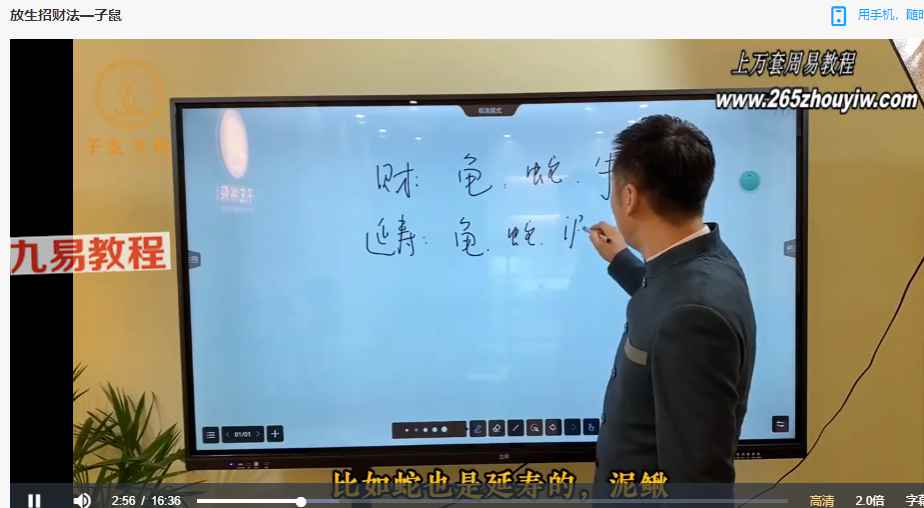 放生招财法—子鼠
用手机，随时
上万套周易教程
www.265zhouyiw.com
财：龟、蛇、牛
九易教程
延寿：龟、蛇、泥
01/01
比如蛇也是延寿的，泥鳅
2:56 / 16:36
高清
2.0倍
字幕